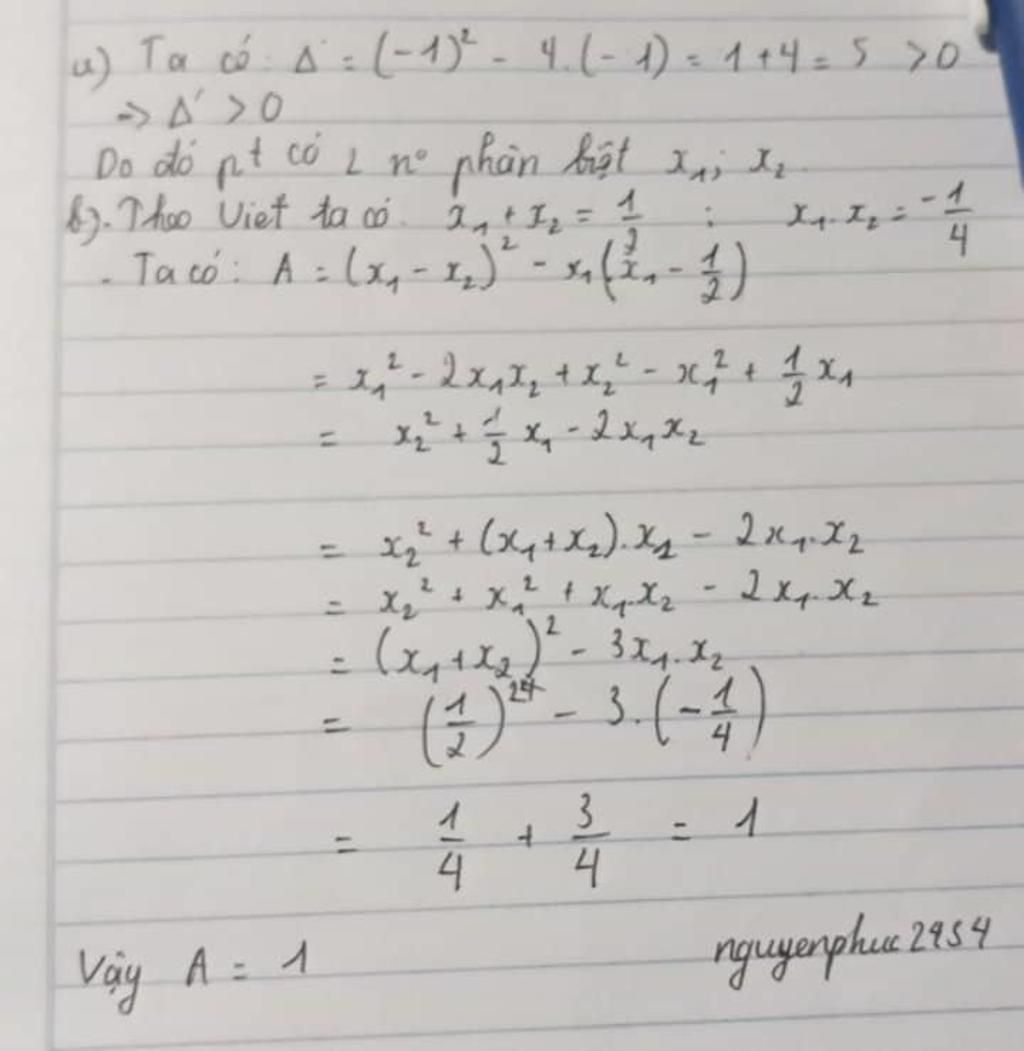 a) Ta có: Δ' = (-1)² - 4.(-1) = 1+4 = 5 > 0
=> Δ' > 0
Do đó pt có 2 n° phân biệt x₁; x₂.
b). Theo Viet ta có. x₁ + x₂ = 1/2 ; x₁. x₂ = -1/4
. Ta có: A = (x₁ - x₂)² - x₁(x₁ - 1/2)
= x₁² - 2x₁x₂ + x₂² - x₁² + 1/2 x₁
= x₂² + 1/2 x₁ - 2x₁x₂
= x₂² + (x₁+x₂).x₁ - 2x₁.x₂
= x₂² + x₁² + x₁.x₂ - 2x₁.x₂
= (x₁+x₂)² - 3x₁.x₂
= (1/2)² - 3.(-1/4)
= 1/4 + 3/4 = 1
Vậy A = 1 nguyenphuc2454